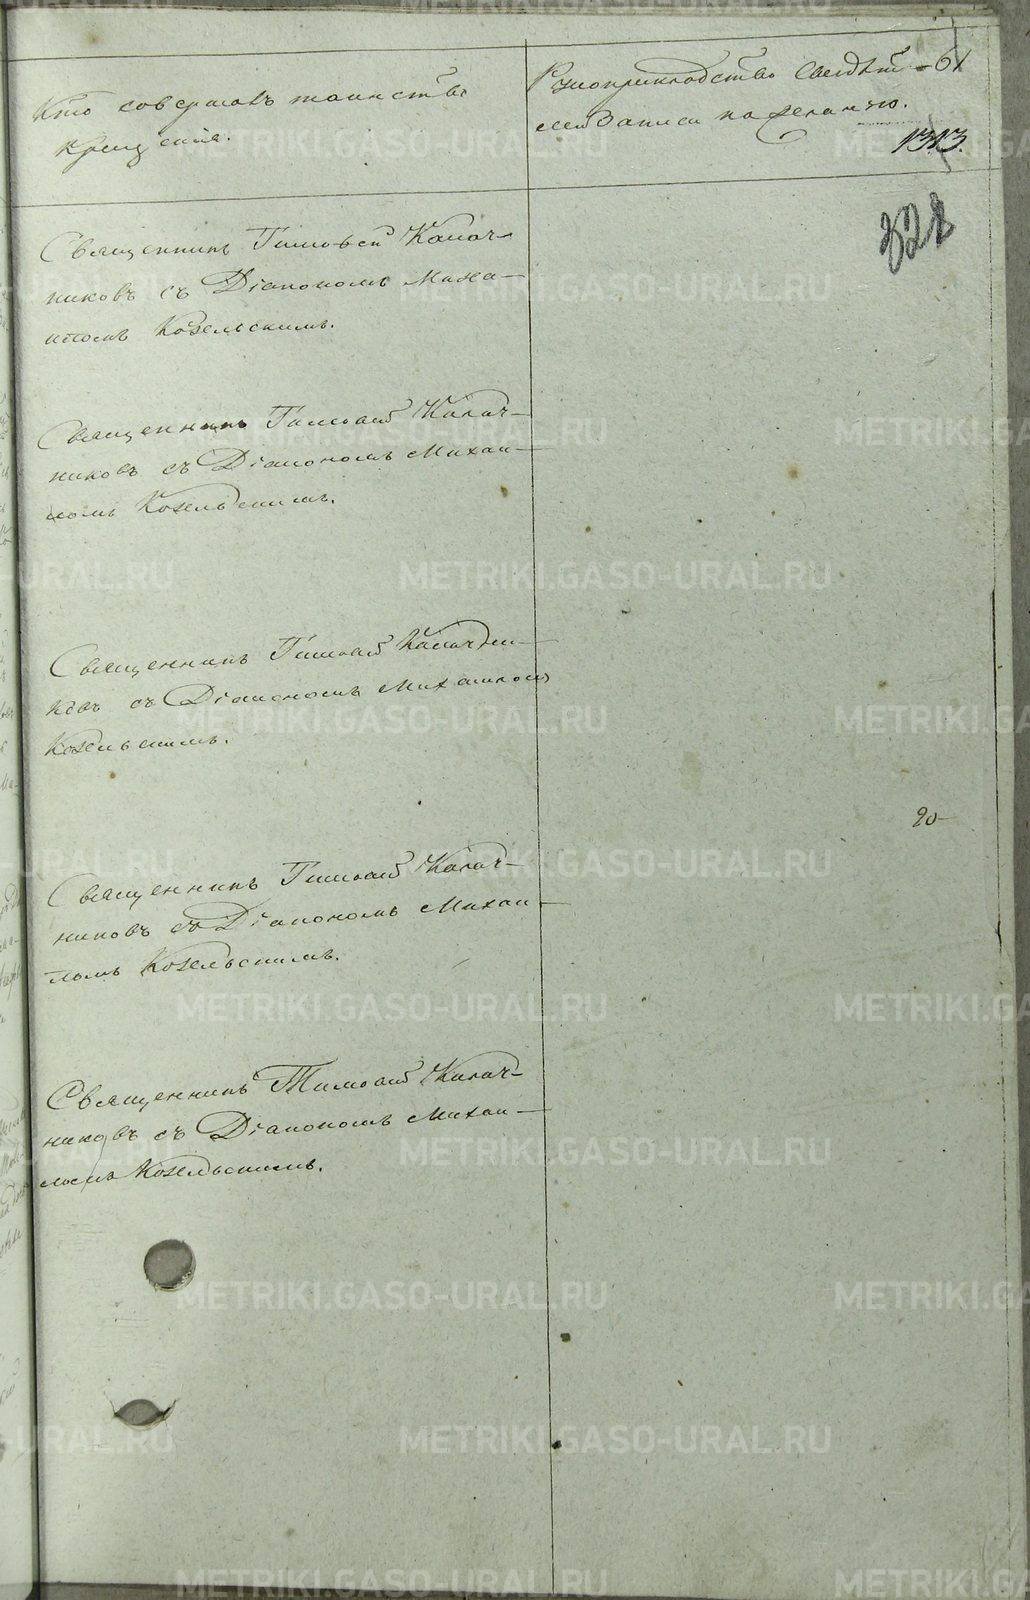 Кто совершалъ таинство
крещенія.
Рукоприкладство свидѣт-
лей записи по желанію.
61
1313.
328
Священникъ Тимоѳей Калач-
никовъ съ Діакономъ Миха-
иломъ Козельскимъ.
Священникъ Тимоѳей Калач-
никовъ съ Діакономъ Михаи-
ломъ Козельскимъ.
Священникъ Тимоѳей Калачни-
ковъ съ Діакономъ Михаиломъ
Козельскимъ.
20
Священникъ Тимоѳей Калач-
никовъ съ Діакономъ Михаи-
ломъ Козельскимъ.
Священникъ Тимоѳей Калач-
никовъ съ Діакономъ Михаи-
ломъ Козельскимъ.
METRIKI.GASO-URAL.RU